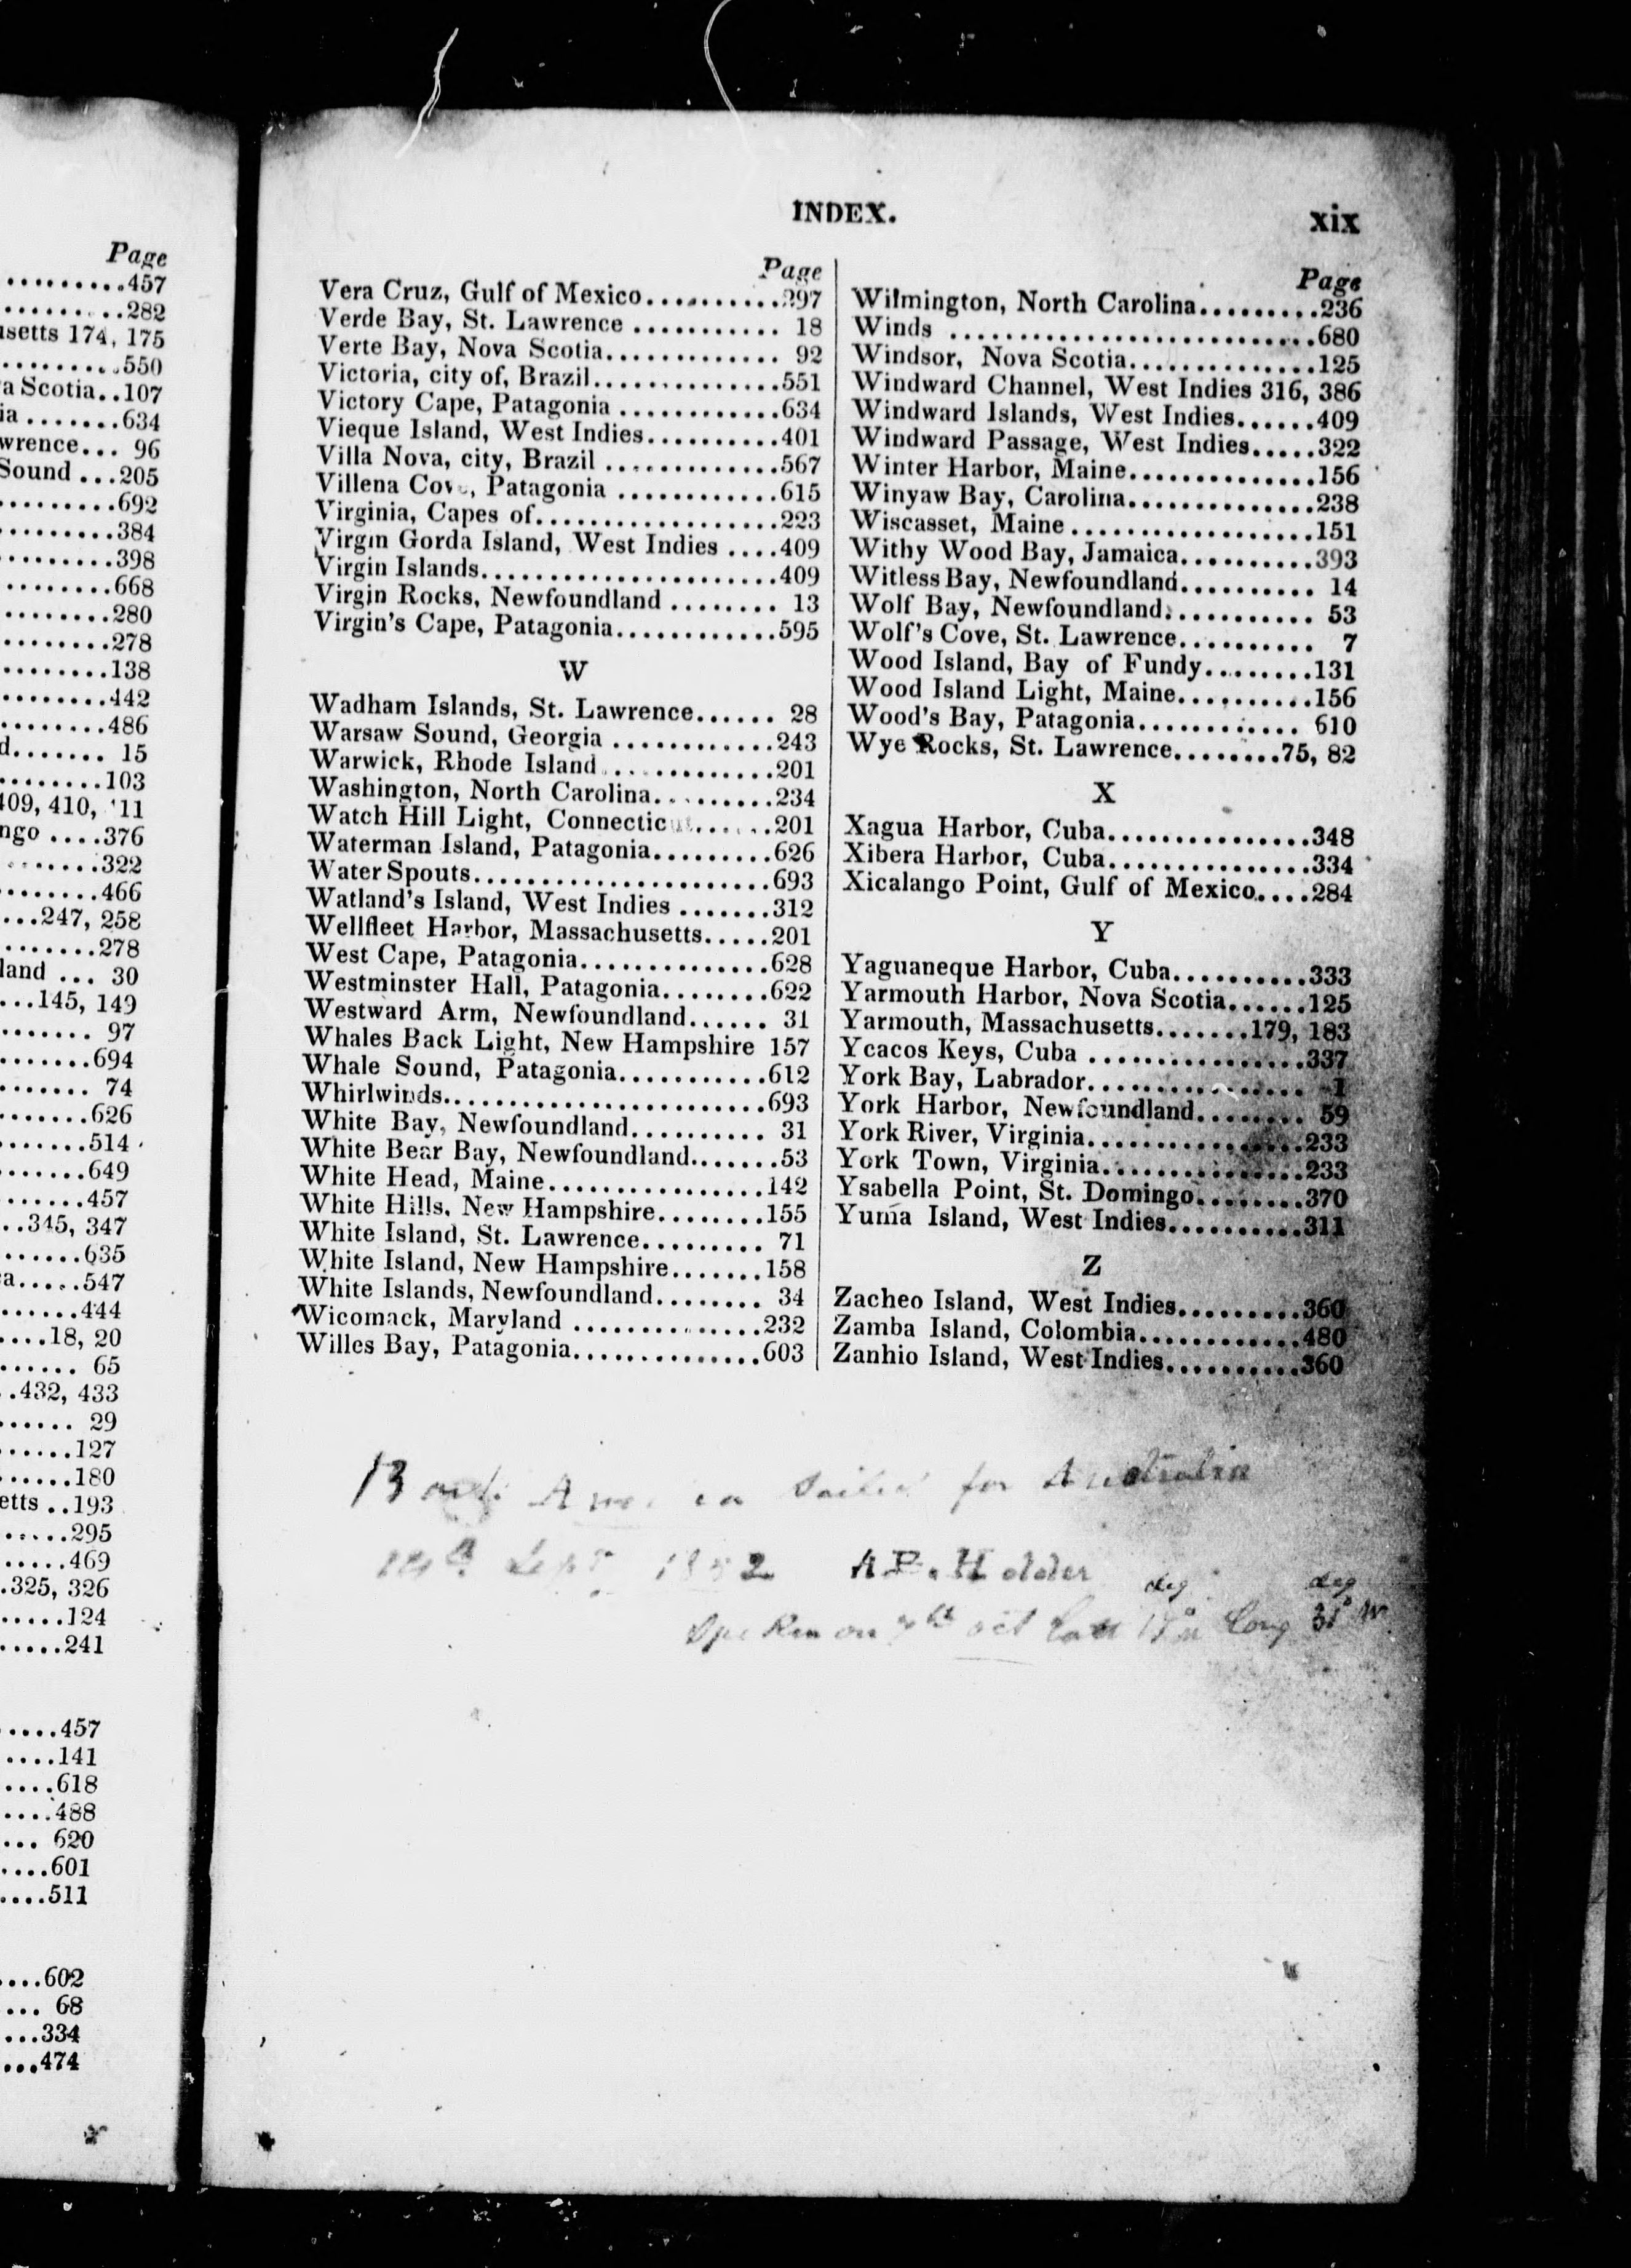 Page
.........457
.........282
usetts 174, 175
.........550
a Scotia..107
ia.......634
wrence... 96
Sound...205
.........692
.........384
.........398
.........668
.........280
.........278
.........138
.........442
.........486
d....... 15
.........103
409, 410,
ngo....376
.......322
........466
...247, 258
........278
land ... 30
...145, 149
....... 97
.......694
....... 74
.......626
.......514
.......649
.......457
..345, 347
.......635
a.....547
......444
....18, 20
...... 65
..432, 433
...... 29
......127
......180
etts..193
.....295
.....469
.325, 326
.....124
.....241
.....457
....141
....618
....488
... 620
....601
....511
....602
... 68
...334
...474
INDEX.
xix
Page
Vera Cruz, Gulf of Mexico..........297
Verde Bay, St. Lawrence ........... 18
Verte Bay, Nova Scotia............. 92
Victoria, city of, Brazil..............551
Victory Cape, Patagonia ............634
Vieque Island, West Indies..........401
Villa Nova, city, Brazil .............567
Villena Cove, Patagonia ............615
Virginia, Capes of..................223
Virgin Gorda Island, West Indies ....409
Virgin Islands......................409
Virgin Rocks, Newfoundland ........ 13
Virgin's Cape, Patagonia............595
W
Wadham Islands, St. Lawrence...... 28
Warsaw Sound, Georgia ............243
Warwick, Rhode Island.............201
Washington, North Carolina.........234
Watch Hill Light, Connecticut......201
Waterman Island, Patagonia.........626
Water Spouts......................693
Watland's Island, West Indies .......312
Wellfleet Harbor, Massachusetts.....201
West Cape, Patagonia..............628
Westminster Hall, Patagonia........622
Westward Arm, Newfoundland...... 31
Whales Back Light, New Hampshire 157
Whale Sound, Patagonia...........612
Whirlwinds........................693
White Bay, Newfoundland.......... 31
White Bear Bay, Newfoundland.......53
White Head, Maine................142
White Hills, New Hampshire........155
White Island, St. Lawrence......... 71
White Island, New Hampshire.......158
White Islands, Newfoundland........ 34
Wicomack, Maryland ..............232
Willes Bay, Patagonia..............603
Page
Wilmington, North Carolina.........236
Winds ............................680
Windsor, Nova Scotia..............125
Windward Channel, West Indies 316, 386
Windward Islands, West Indies......409
Windward Passage, West Indies.....322
Winter Harbor, Maine..............156
Winyaw Bay, Carolina..............238
Wiscasset, Maine..................151
Withy Wood Bay, Jamaica..........393
Witless Bay, Newfoundland.......... 14
Wolf Bay, Newfoundland........... 53
Wolf's Cove, St. Lawrence.......... 7
Wood Island, Bay of Fundy........131
Wood Island Light, Maine..........156
Wood's Bay, Patagonia............ 610
Wye Rocks, St. Lawrence........75, 82
X
Xagua Harbor, Cuba...............348
Xibera Harbor, Cuba...............334
Xicalango Point, Gulf of Mexico....284
Y
Yaguaneque Harbor, Cuba..........333
Yarmouth Harbor, Nova Scotia......125
Yarmouth, Massachusetts.......179, 183
Ycacos Keys, Cuba ................337
York Bay, Labrador................ 1
York Harbor, Newfoundland........ 59
York River, Virginia................233
York Town, Virginia...............233
Ysabella Point, St. Domingo........370
Yuma Island, West Indies..........311
Z
Zacheo Island, West Indies.........360
Zamba Island, Colombia............480
Zanhio Island, West Indies..........360
America Sailed for Australia
Sept 1852 A Holder
deg deg
Spoken on oct Long W